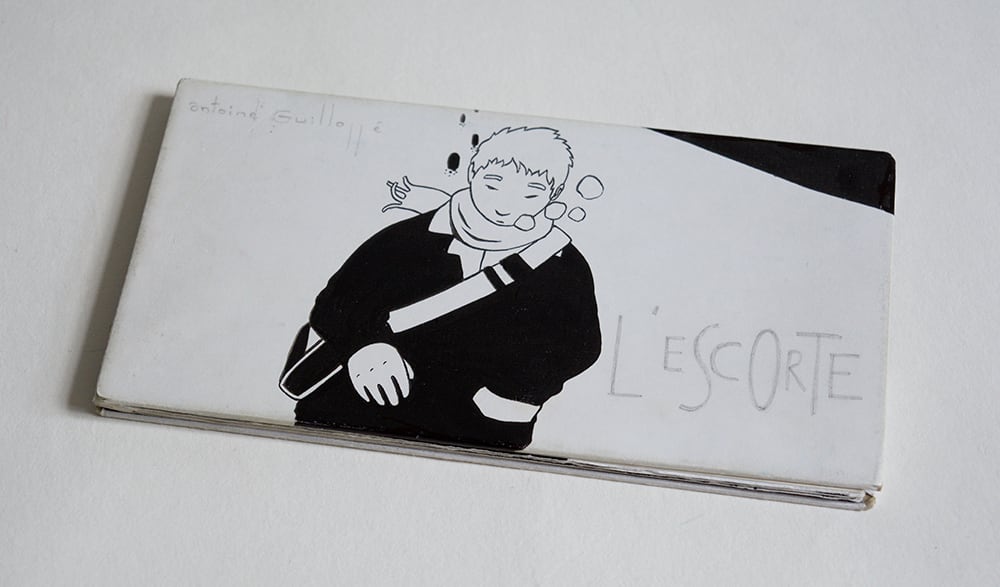 antoine Guilloppé
L'ESCORTE